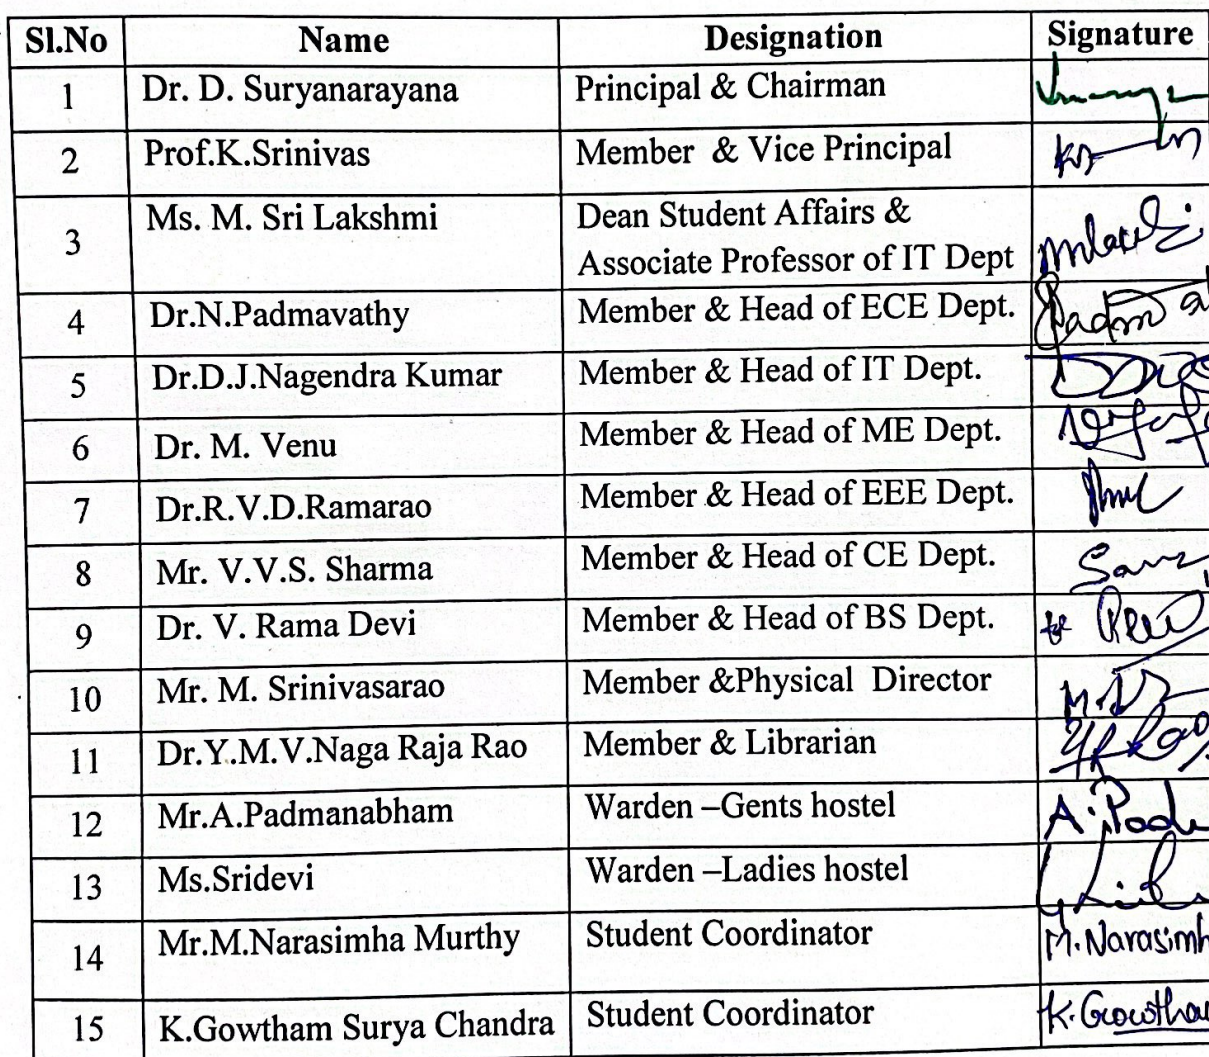 Sl.No Name Designation Signature
1 Dr. D. Suryanarayana Principal & Chairman
2 Prof.K.Srinivas Member & Vice Principal
3 Ms. M. Sri Lakshmi Dean Student Affairs &
Associate Professor of IT Dept
4 Dr.N.Padmavathy Member & Head of ECE Dept.
5 Dr.D.J.Nagendra Kumar Member & Head of IT Dept.
6 Dr. M. Venu Member & Head of ME Dept.
7 Dr.R.V.D.Ramarao Member & Head of EEE Dept.
8 Mr. V.V.S. Sharma Member & Head of CE Dept.
9 Dr. V. Rama Devi Member & Head of BS Dept.
10 Mr. M. Srinivasarao Member &Physical Director
11 Dr.Y.M.V.Naga Raja Rao Member & Librarian
12 Mr.A.Padmanabham Warden –Gents hostel
13 Ms.Sridevi Warden –Ladies hostel
14 Mr.M.Narasimha Murthy Student Coordinator M.Narasimh
15 K.Gowtham Surya Chandra Student Coordinator K.Gowtha